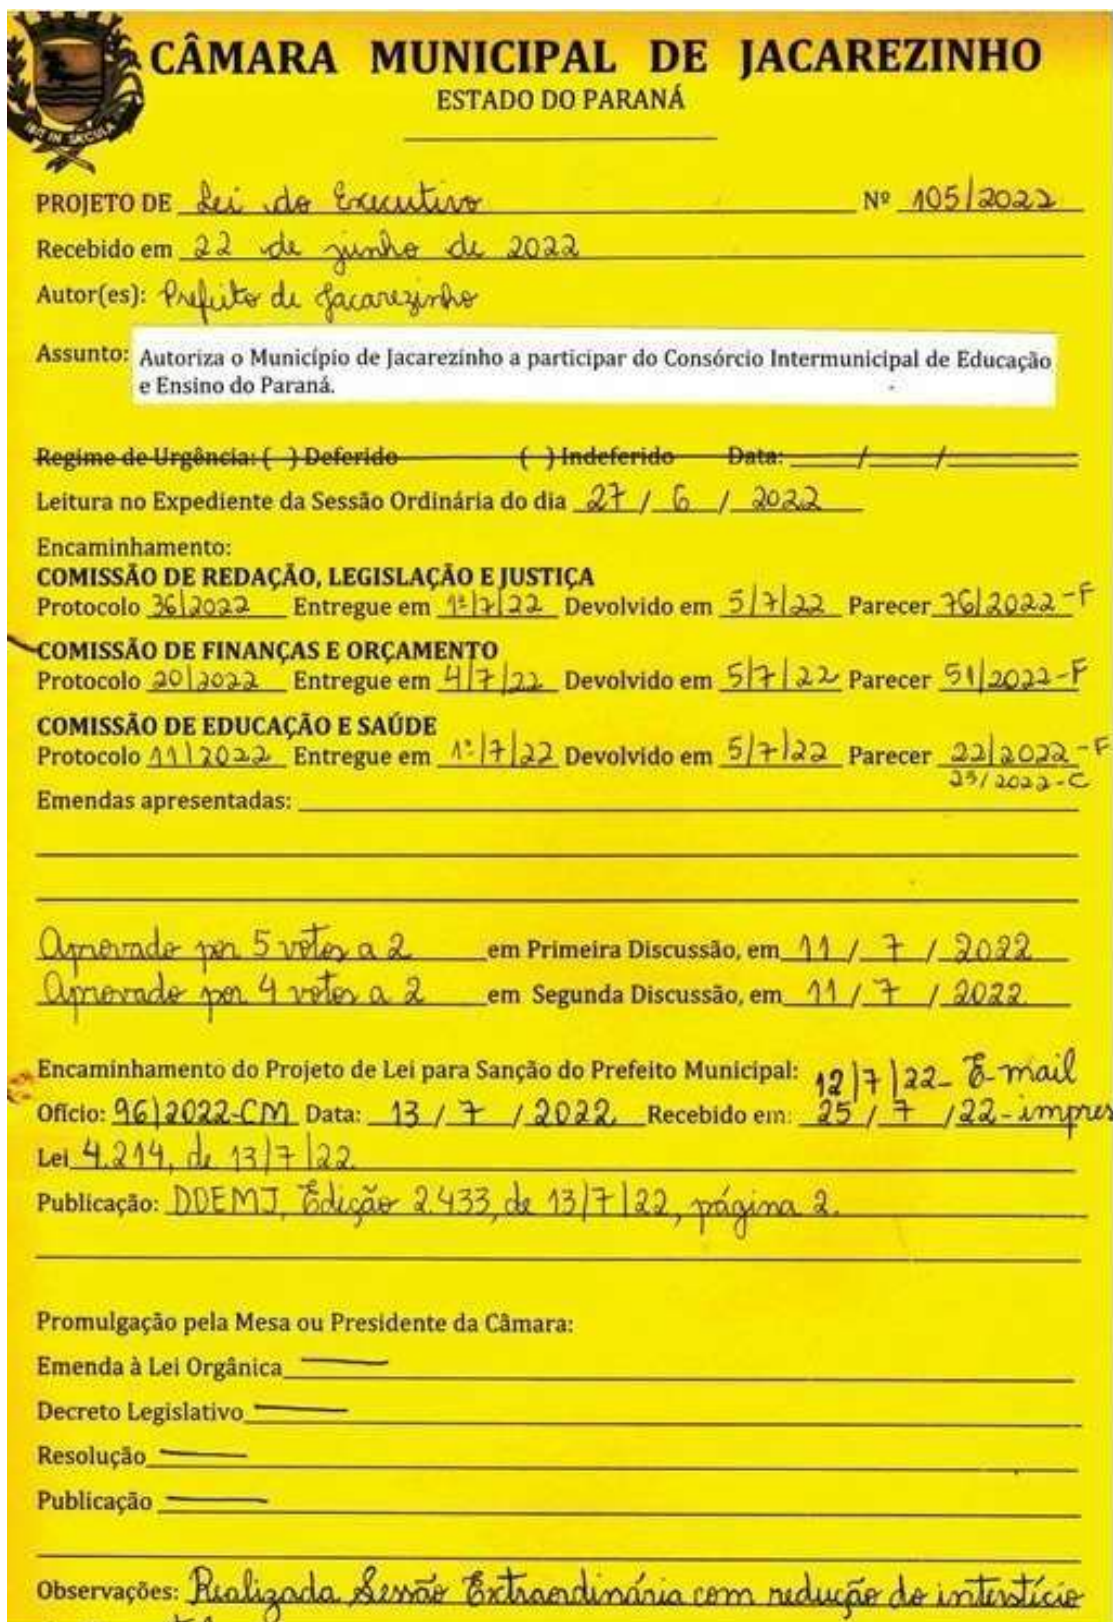 CÂMARA MUNICIPAL DE JACAREZINHO
ESTADO DO PARANÁ
IBIT IN SÆCULA
PROJETO DE Lei do Executivo Nº 105/2022
Recebido em 22 de junho de 2022
Autor(es): Prefeito de Jacarezinho
Assunto: Autoriza o Município de Jacarezinho a participar do Consórcio Intermunicipal de Educação
e Ensino do Paraná.
Regime de Urgência: ( ) Deferido ( ) Indeferido Data: / /
Leitura no Expediente da Sessão Ordinária do dia 27 / 6 / 2022
Encaminhamento:
COMISSÃO DE REDAÇÃO, LEGISLAÇÃO E JUSTIÇA
Protocolo 36/2022 Entregue em 1º/7/22 Devolvido em 5/7/22 Parecer 76/2022-F
COMISSÃO DE FINANÇAS E ORÇAMENTO
Protocolo 20/2022 Entregue em 4/7/22 Devolvido em 5/7/22 Parecer 51/2022-F
COMISSÃO DE EDUCAÇÃO E SAÚDE
Protocolo 11/2022 Entregue em 1º/7/22 Devolvido em 5/7/22 Parecer 22/2022-F
23/2022-C
Emendas apresentadas:
Aprovado por 5 votos a 2 em Primeira Discussão, em 11 / 7 / 2022
Aprovado por 4 votos a 2 em Segunda Discussão, em 11 / 7 / 2022
Encaminhamento do Projeto de Lei para Sanção do Prefeito Municipal: 12/7/22- E-mail
Ofício: 96/2022-CM Data: 13 / 7 / 2022 Recebido em: 25 / 7 /22-impres
Lei 4.214, de 13/7/22
Publicação: DOEMJ, Edição 2.433, de 13/7/22, página 2.
Promulgação pela Mesa ou Presidente da Câmara:
Emenda à Lei Orgânica
Decreto Legislativo
Resolução
Publicação
Observações: Realizada Sessão Extraordinária com redução do interstício